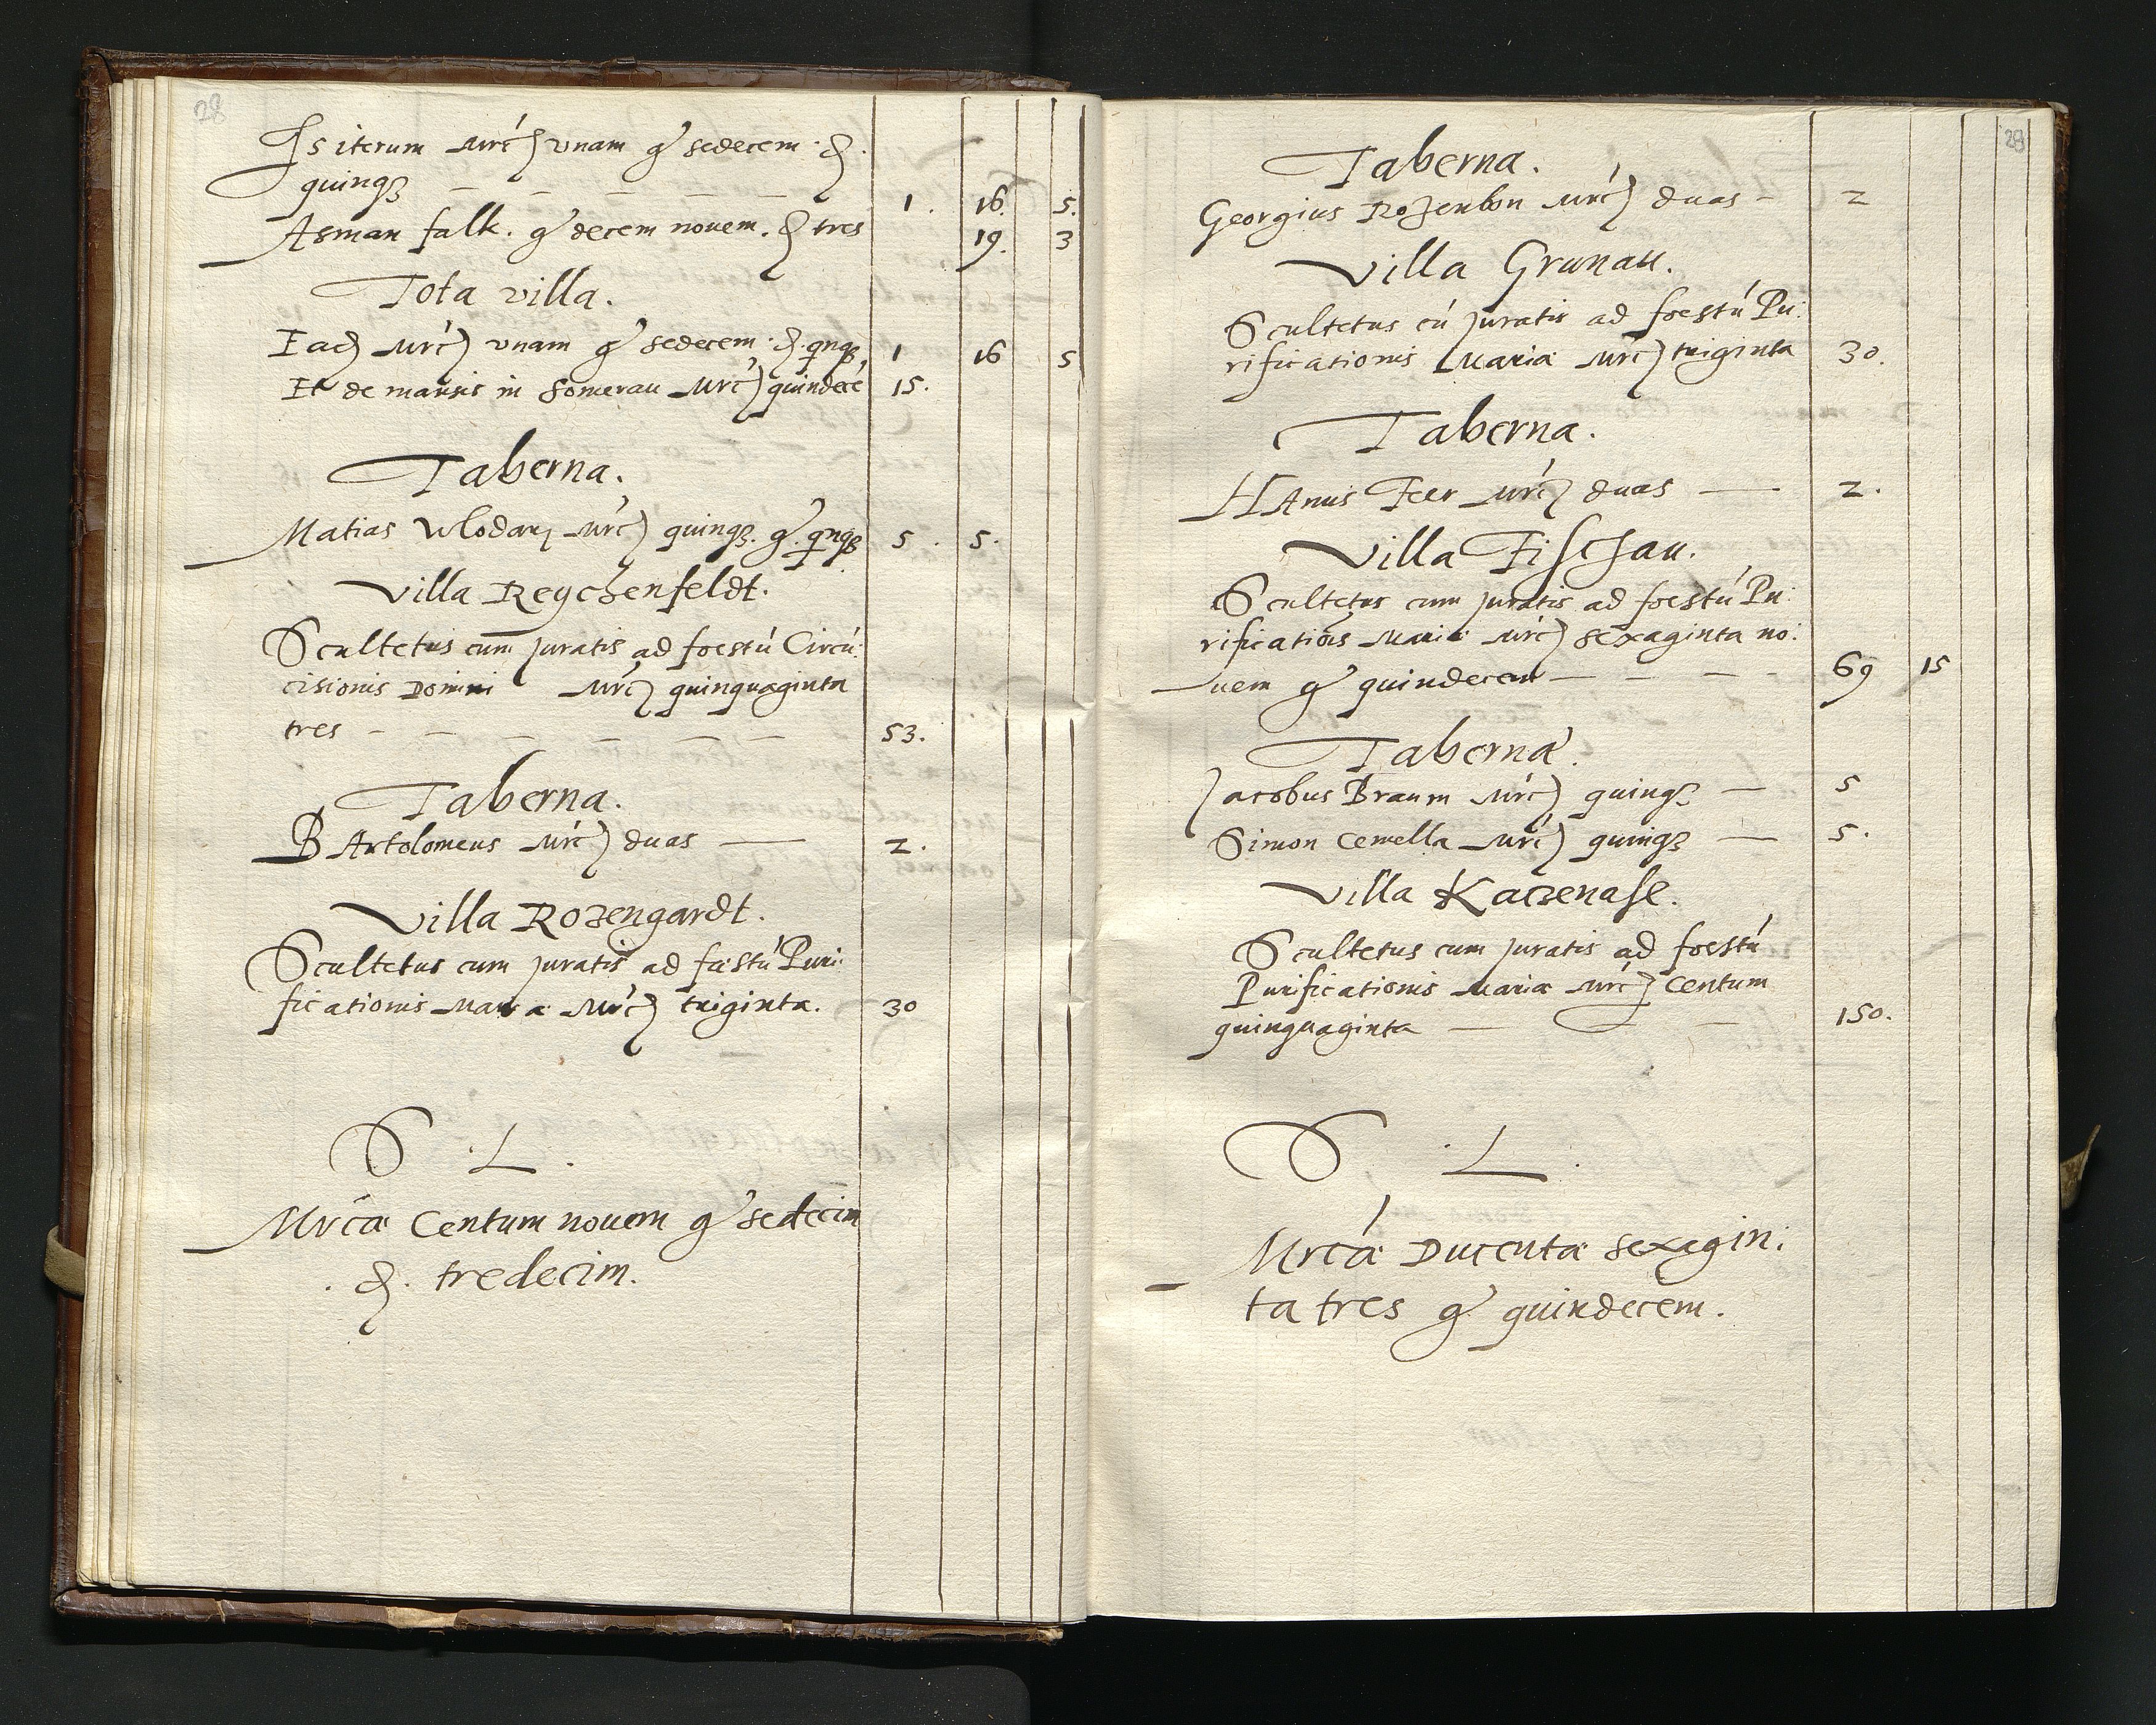 28
Is iterum Mrc. vnam g sedecem . d.
quinqz — — — — — 1. 16. 5.
Asman falk. g decem nouem. d tres 19. 3
Tota villa.
Mrc. vnam g sedecem . d. qnqz 1 16 5
Et de mansis in Somerau Mrc. quindecē 15.
Taberna.
Matias Wlodarz Mrc. quinqz. g. qnqz 5. 5.
Villa Reychenfeldt.
Scultetus cum juratis ad foestū Circū:
cisionis Domini Mrc. quinquaginta
tres — — — — — — 53.
Taberna.
BArtolomeus Mrc. duas — 2.
Villa Rozengardt.
Scultetus cum juratis ad fæstū Puri:
ficationis Maria Mrc. triginta. 30
S . L .
Mrca Centum nouem g sedecim
. d. tredecim.
29
Taberna.
Georgius Rozenbon Mrc. duas - 2
Villa Grunau.
Scultetus cū juratis ad foestū Pu:
rificationis Maria Mrc. triginta 30.
Taberna.
HAnus Feer Mrc. duas — 2.
Villa Fischau.
Scultetus cum juratis ad foestū Pu:
rificatiōis Maria Mrc. sexaginta no:
uem g quindecem — — — — 69 15
Taberna.
Jacobus Braum Mrc. quinqz — 5
Simon Cemella Mrc. quinqz — 5.
Villa Kaczenase.
Scultetus cum juratis ad foestū
Purificationis Maria Mrc. Centum
quinquaginta — — — 150.
S . L .
Mrca Ducenta sexagin:
ta tres g quindecem.